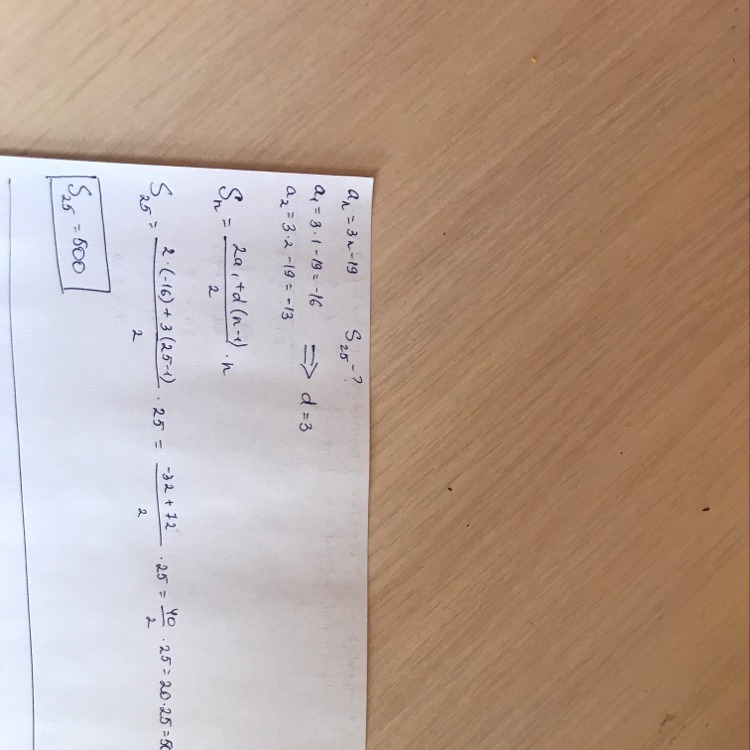 aₙ = 3n - 19 S₂₅ - ?
a₁ = 3·1 - 19 = -16
a₂ = 3·2 - 19 = -13 ⟹ d = 3
Sₙ = (2a₁ + d(n-1))/2 · n
S₂₅ = (2·(-16) + 3(25-1))/2 · 25 = (-32 + 72)/2 · 25 = 40/2 · 25 = 20·25 =
S₂₅ = 500